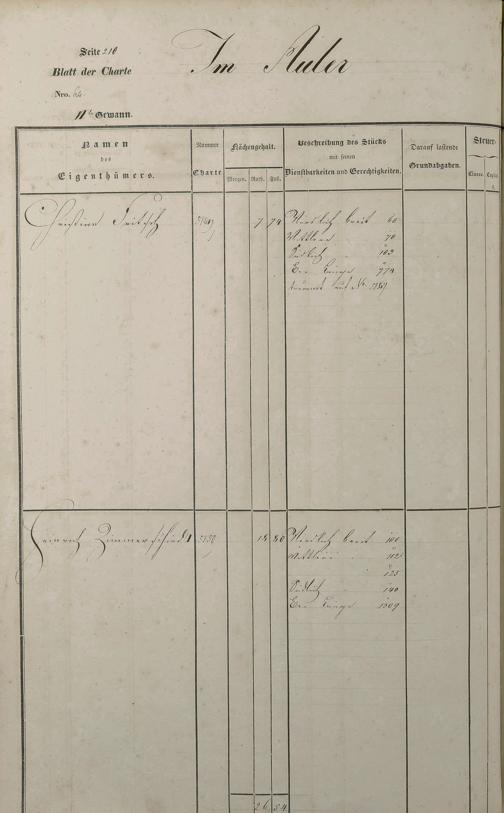 Seite 210
Blatt der Charte
Nro. 64
IIte Gewann.
Im Auler
Namen
des
Eigenthümers.
Nummer
Charte
Flächengehalt.
Morgen. Ruth. Fuß.
Beschreibung des Stücks
mit seinen
Dienstbarkeiten und Gerechtigkeiten.
Darauf lastende
Grundabgaben.
Steuer-
Classe.
Christian 7 74 Nördlich breit 60
Mittlere 70
Südlich 103
Die Länge 774
Heinrich Zimmerschied 18 80 Nördlich breit 100
Mittlere 112
125
Südlich 140
Die Länge 1509
26 54